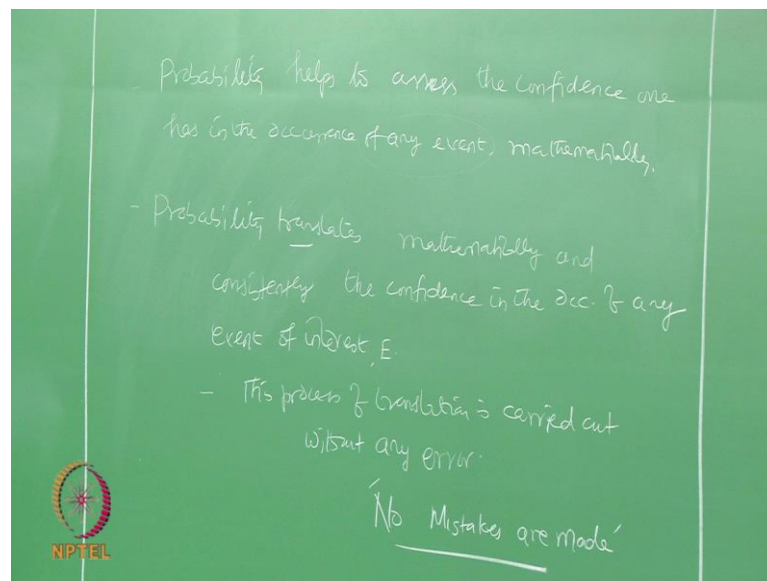 - Probability helps to assess the confidence one
has in the occurrence of any event, mathematically.
- Probability translates mathematically and
consistently the confidence in the occ. of any
event of interest, E.
- This process of translation is carried out
without any error.
'No Mistakes are made'
NPTEL